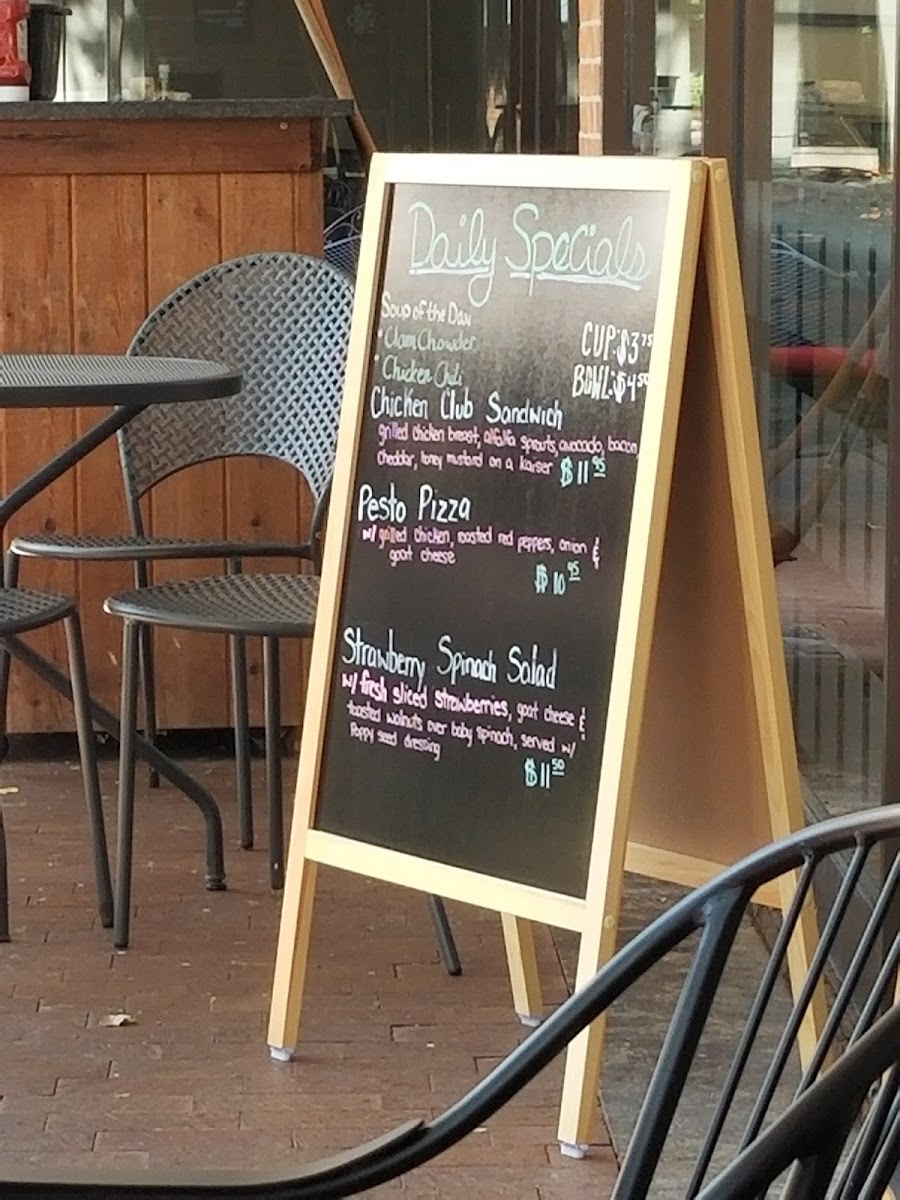 Daily Specials
Soup of the Day
• Clam Chowder CUP: $3.75
• Chicken Chili BOWL: $4.50
Chicken Club Sandwich
grilled chicken breast, alfalfa sprouts, avocado, bacon,
cheddar, honey mustard on a kaiser $11.95
Pesto Pizza
w/ grilled chicken, roasted red peppers, onion &
goat cheese
$10.95
Strawberry Spinach Salad
w/ fresh sliced strawberries, goat cheese &
toasted walnuts over baby spinach, served w/
Poppy seed dressing
$11.50